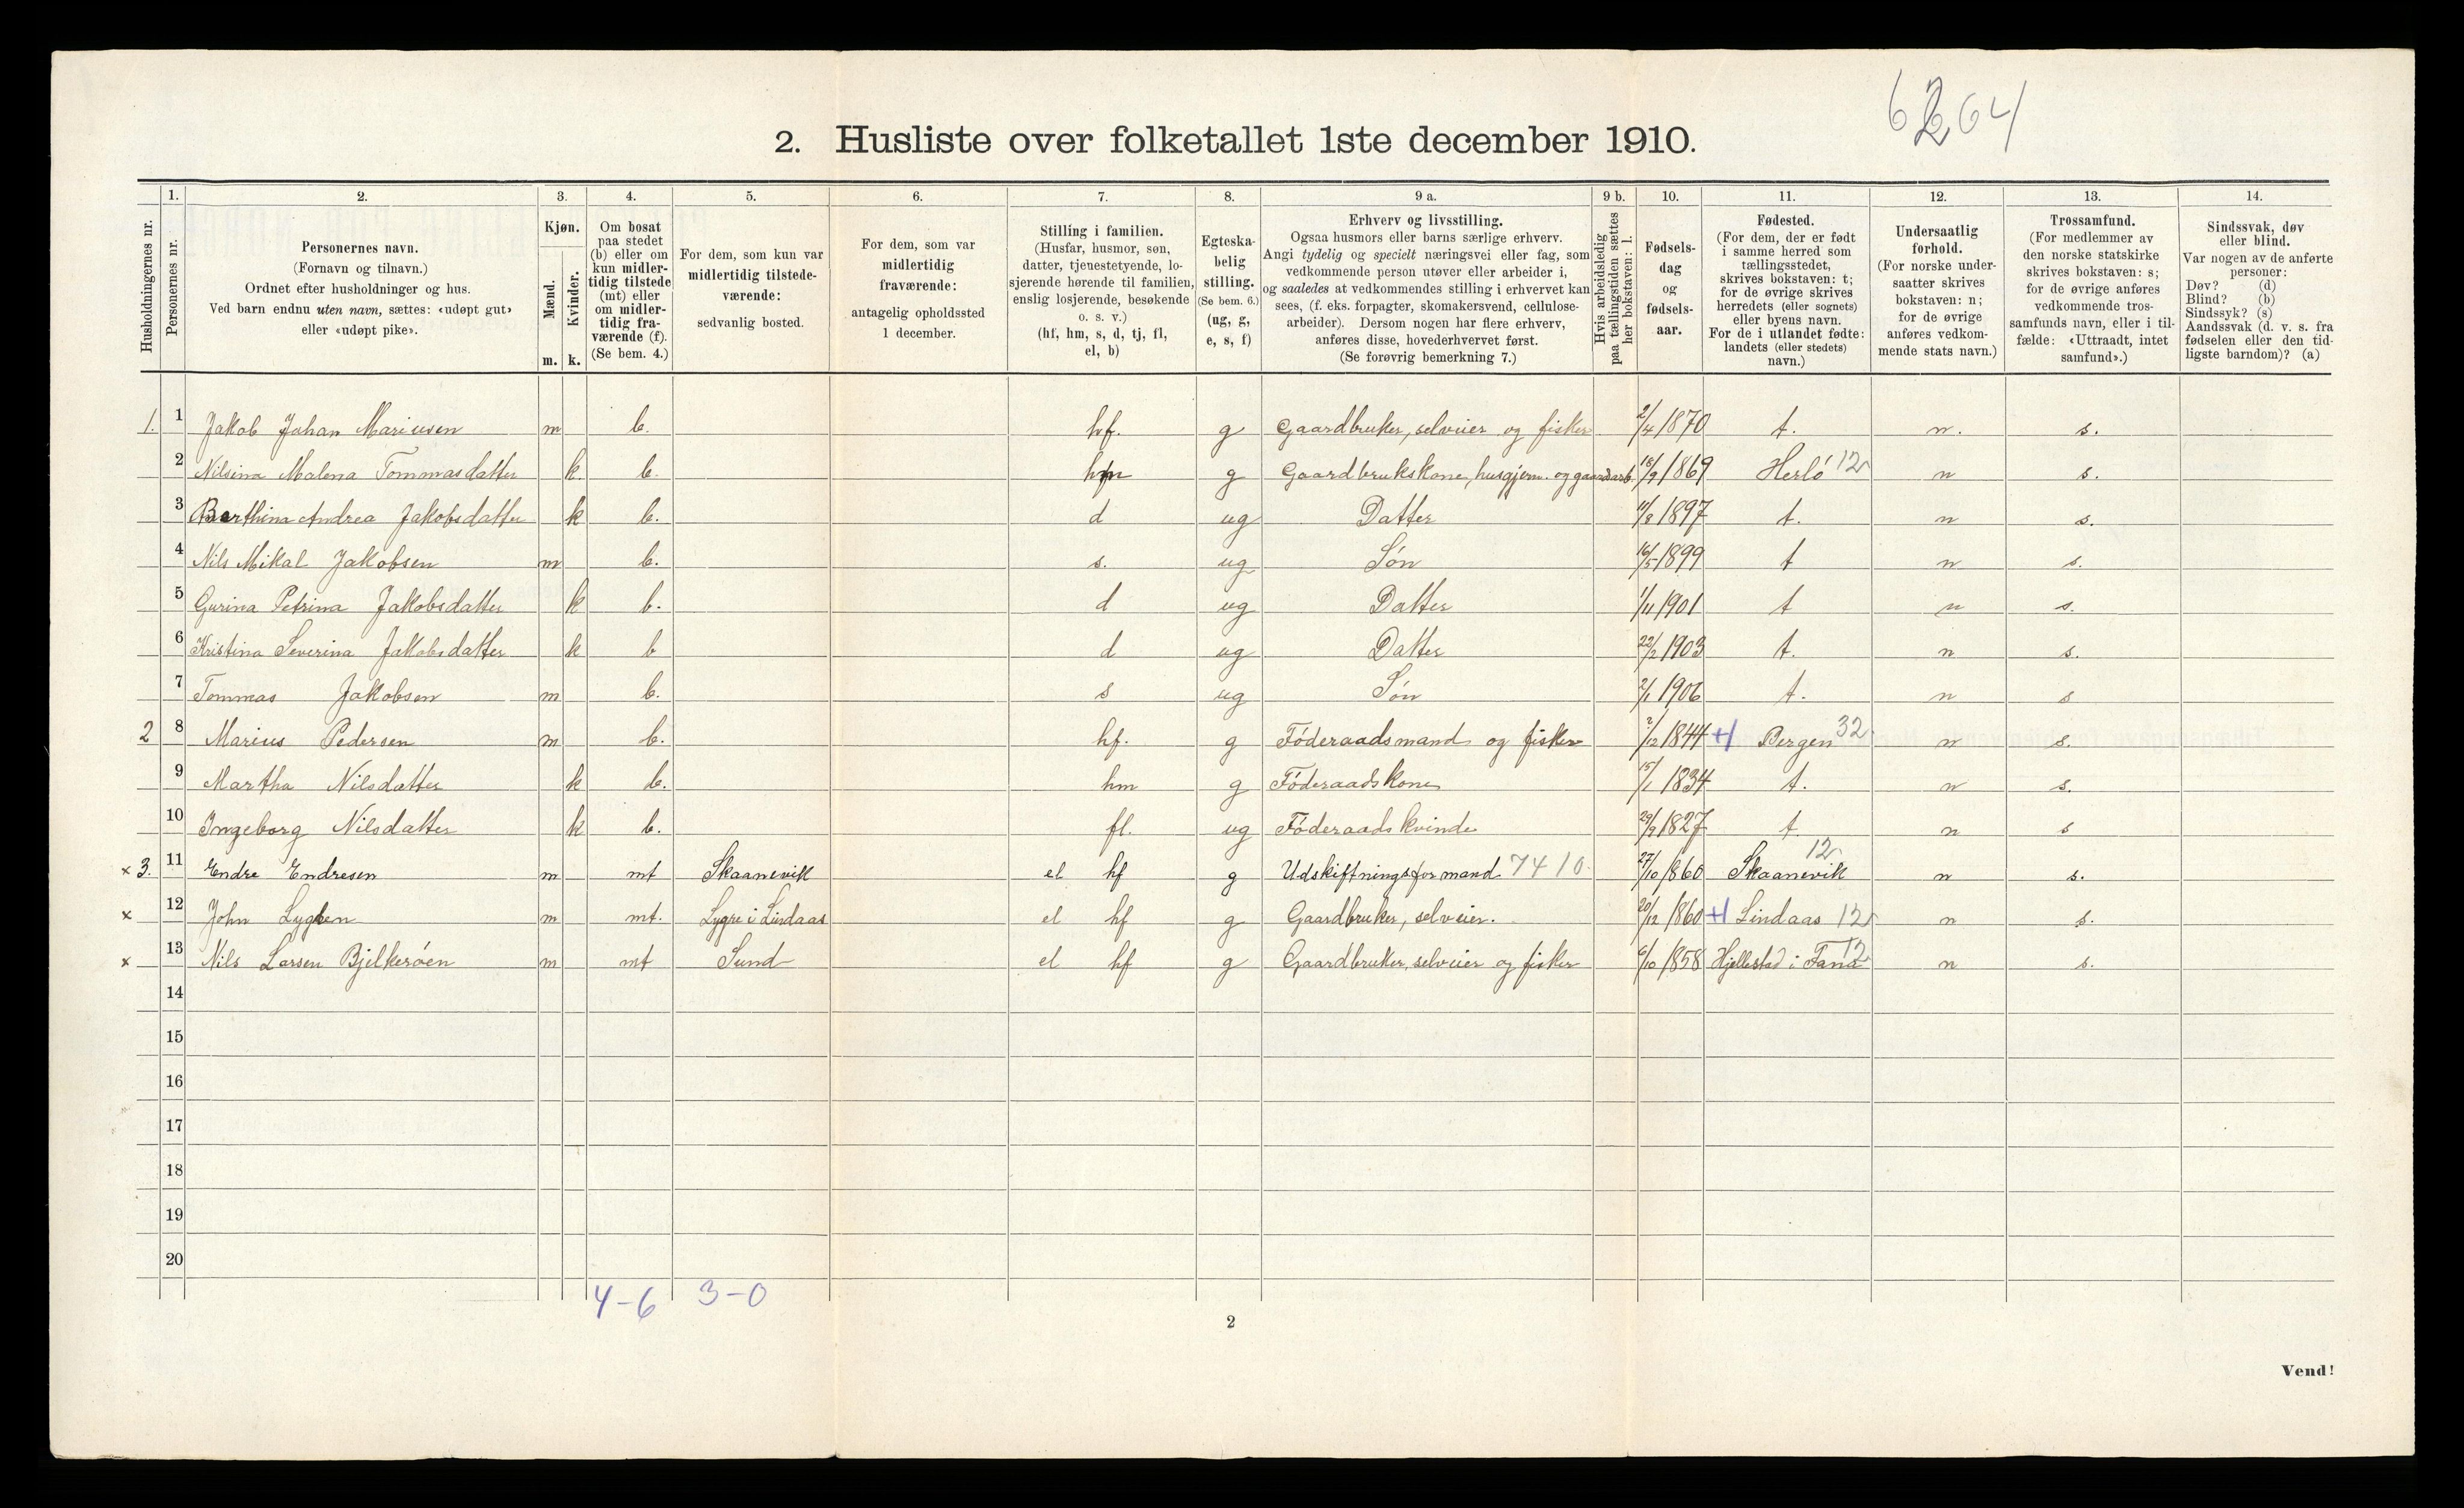 6264
2. Husliste over folketallet 1ste december 1910.
1. 2. 3. 4. 5. 6. 7. 8. 9 a. 9 b. 10. 11. 12. 13. 14.
Husholdningernes nr.
Personernes nr.
Personernes navn.
(Fornavn og tilnavn.)
Ordnet efter husholdninger og hus.
Ved barn endnu uten navn, sættes: «udøpt gut»
eller «udøpt pike».
Kjøn.
Mænd.
Kvinder.
m. k.
Om bosat
paa stedet
(b) eller om
kun midler-
tidig tilstede
(mt) eller
om midler-
tidig fra-
værende (f).
(Se bem. 4.)
For dem, som kun var
midlertidig tilstede-
værende:
sedvanlig bosted.
For dem, som var
midlertidig
fraværende:
antagelig opholdssted
1 december.
Stilling i familien.
(Husfar, husmor, søn,
datter, tjenestetyende, lo-
sjerende hørende til familien,
enslig losjerende, besøkende
o. s. v.)
(hf, hm, s, d, tj, fl,
el, b)
Egteska-
belig
stilling.
(Se bem. 6.)
(ug, g,
e, s, f)
Erhverv og livsstilling.
Ogsaa husmors eller barns særlige erhverv.
Angi tydelig og specielt næringsvei eller fag, som
vedkommende person utøver eller arbeider i,
og saaledes at vedkommendes stilling i erhvervet kan
sees, (f. eks. forpagter, skomakersvend, cellulose-
arbeider). Dersom nogen har flere erhverv,
anføres disse, hovederhvervet først.
(Se forøvrig bemerkning 7.)
Hvis arbeidsledig
paa tællingstiden sættes
her bokstaven: l.
Fødsels-
dag
og
fødsels-
aar.
Fødested.
(For dem, der er født
i samme herred som
tællingsstedet,
skrives bokstaven: t;
for de øvrige skrives
herredets (eller sognets)
eller byens navn.
For de i utlandet fødte:
landets (eller stedets)
navn.)
Undersaatlig
forhold.
(For norske under-
saatter skrives
bokstaven: n;
for de øvrige
anføres vedkom-
mende stats navn.)
Trossamfund.
(For medlemmer av
den norske statskirke
skrives bokstaven: s;
for de øvrige anføres
vedkommende tros-
samfunds navn, eller i til-
fælde: «Uttraadt, intet
samfund».)
Sindssvak, døv
eller blind.
Var nogen av de anførte
personer:
Døv? (d)
Blind? (b)
Sindssyk? (s)
Aandssvak (d. v. s. fra
fødselen eller den tid-
ligste barndom)? (a)
1. 1 Jakob Johan Mariusen m b. hf. g Gaardbruker, selveier og fisker 2/4 1870 t. n. s.
2 Nilsina Malena Tommasdatter k. b. hm g Gaardbrukskone, husgjern. og gaardsarb. 18/9 1869 Herlö 12 n s.
3 Berthina Andrea Jakobsdatter k b. d ug Datter 11/8 1897 t. n s.
4 Nils Mikal Jakobsen m b. s. ug Søn 16/5 1899 t n s.
5 Gurina Petrina Jakobsdatter k b. d ug Datter 1/11 1901 t n s.
6 Kristina Severina Jakobsdatter k b d ug Datter 22/2 1903 t. n s.
7 Tommas Jakobsen m b. s ug Søn 2/1 1906 t. n s
2 8 Marius Pedersen m b. hf. g Föderaadsmand og fisker 2/12 1844 + Bergen 32 n s.
9 Martha Nilsdatter k b. hm g Föderaadskone 15/1 1834 t. n s.
10 Ingeborg Nilsdatter k b. fl. ug Föderaadskvinde 29/9 1827 t. n s
x 3. 11 Endre Endresen m mt Skaanevik el hf g Udskiftningsformand 7410. 27/10 1860 Skaanevik 12 n s.
x 12 John Lygren m mt. Lygre i Lindaas el hf g Gaardbruker, selveier. 20/12 1860 + Lindaas 12 n s.
x 13 Nils Larsen Bjelkeröen m mt Sund el hf g Gaardbruker, selveier og fisker 6/10 1858 Hjellestad i Fana 12 n s.
14
15
16
17
18
19
20
4-6 3-0
2
Vend!